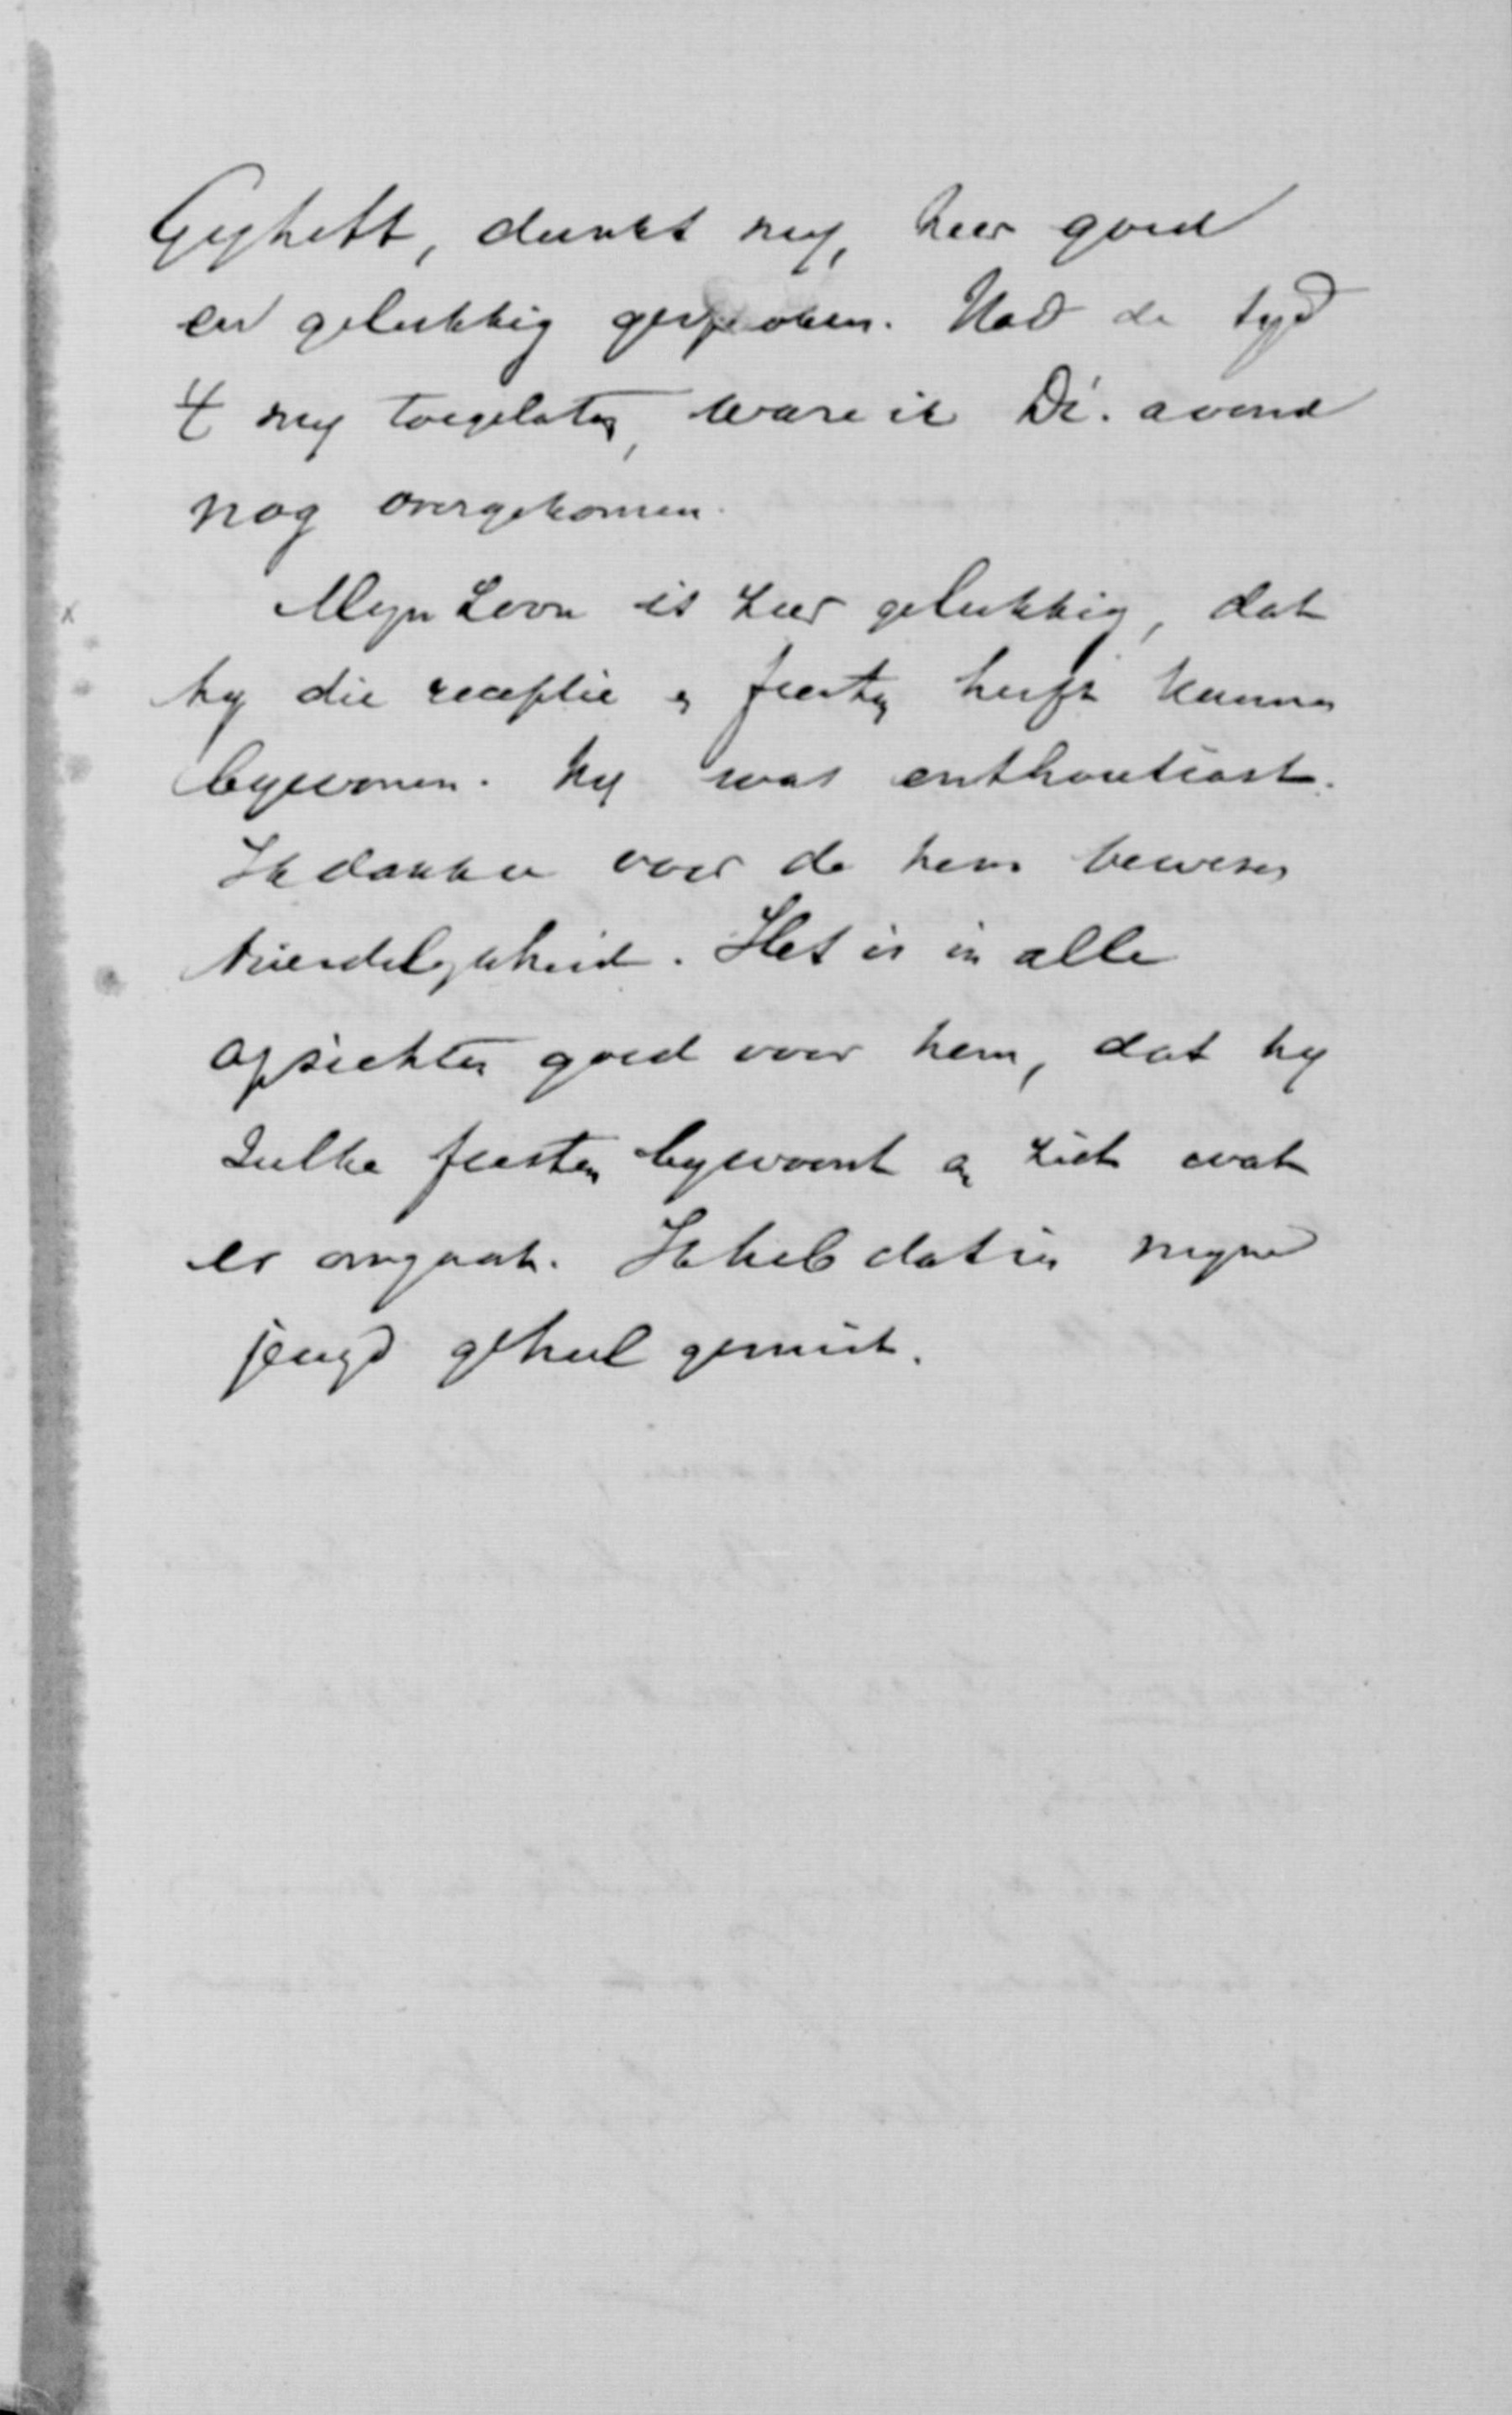 Gyhebt, dunkt my, zeer goed
en gelukkig gesproken. Had de tyd
't my toegelaten, ware ik Di. avond
nog overgekomen.
Myn Zoon is zeer gelukkig, dat
hy die receptie en feesten heeft kunnen
bywonen. Hy was enthousiast.
Ik dank u voor de hem bewezen
vriendelykheid. Het is in alle
opzichten goed voor hem, dat hy
zulke feesten bywoont en ziet wat
er omgaat. Ik heb dat in myne
jeugd geheel gemist.